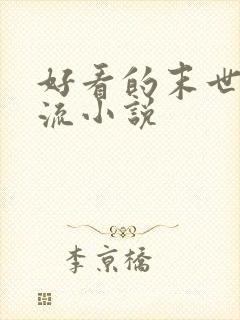 好看的末世
流小説
李京橋